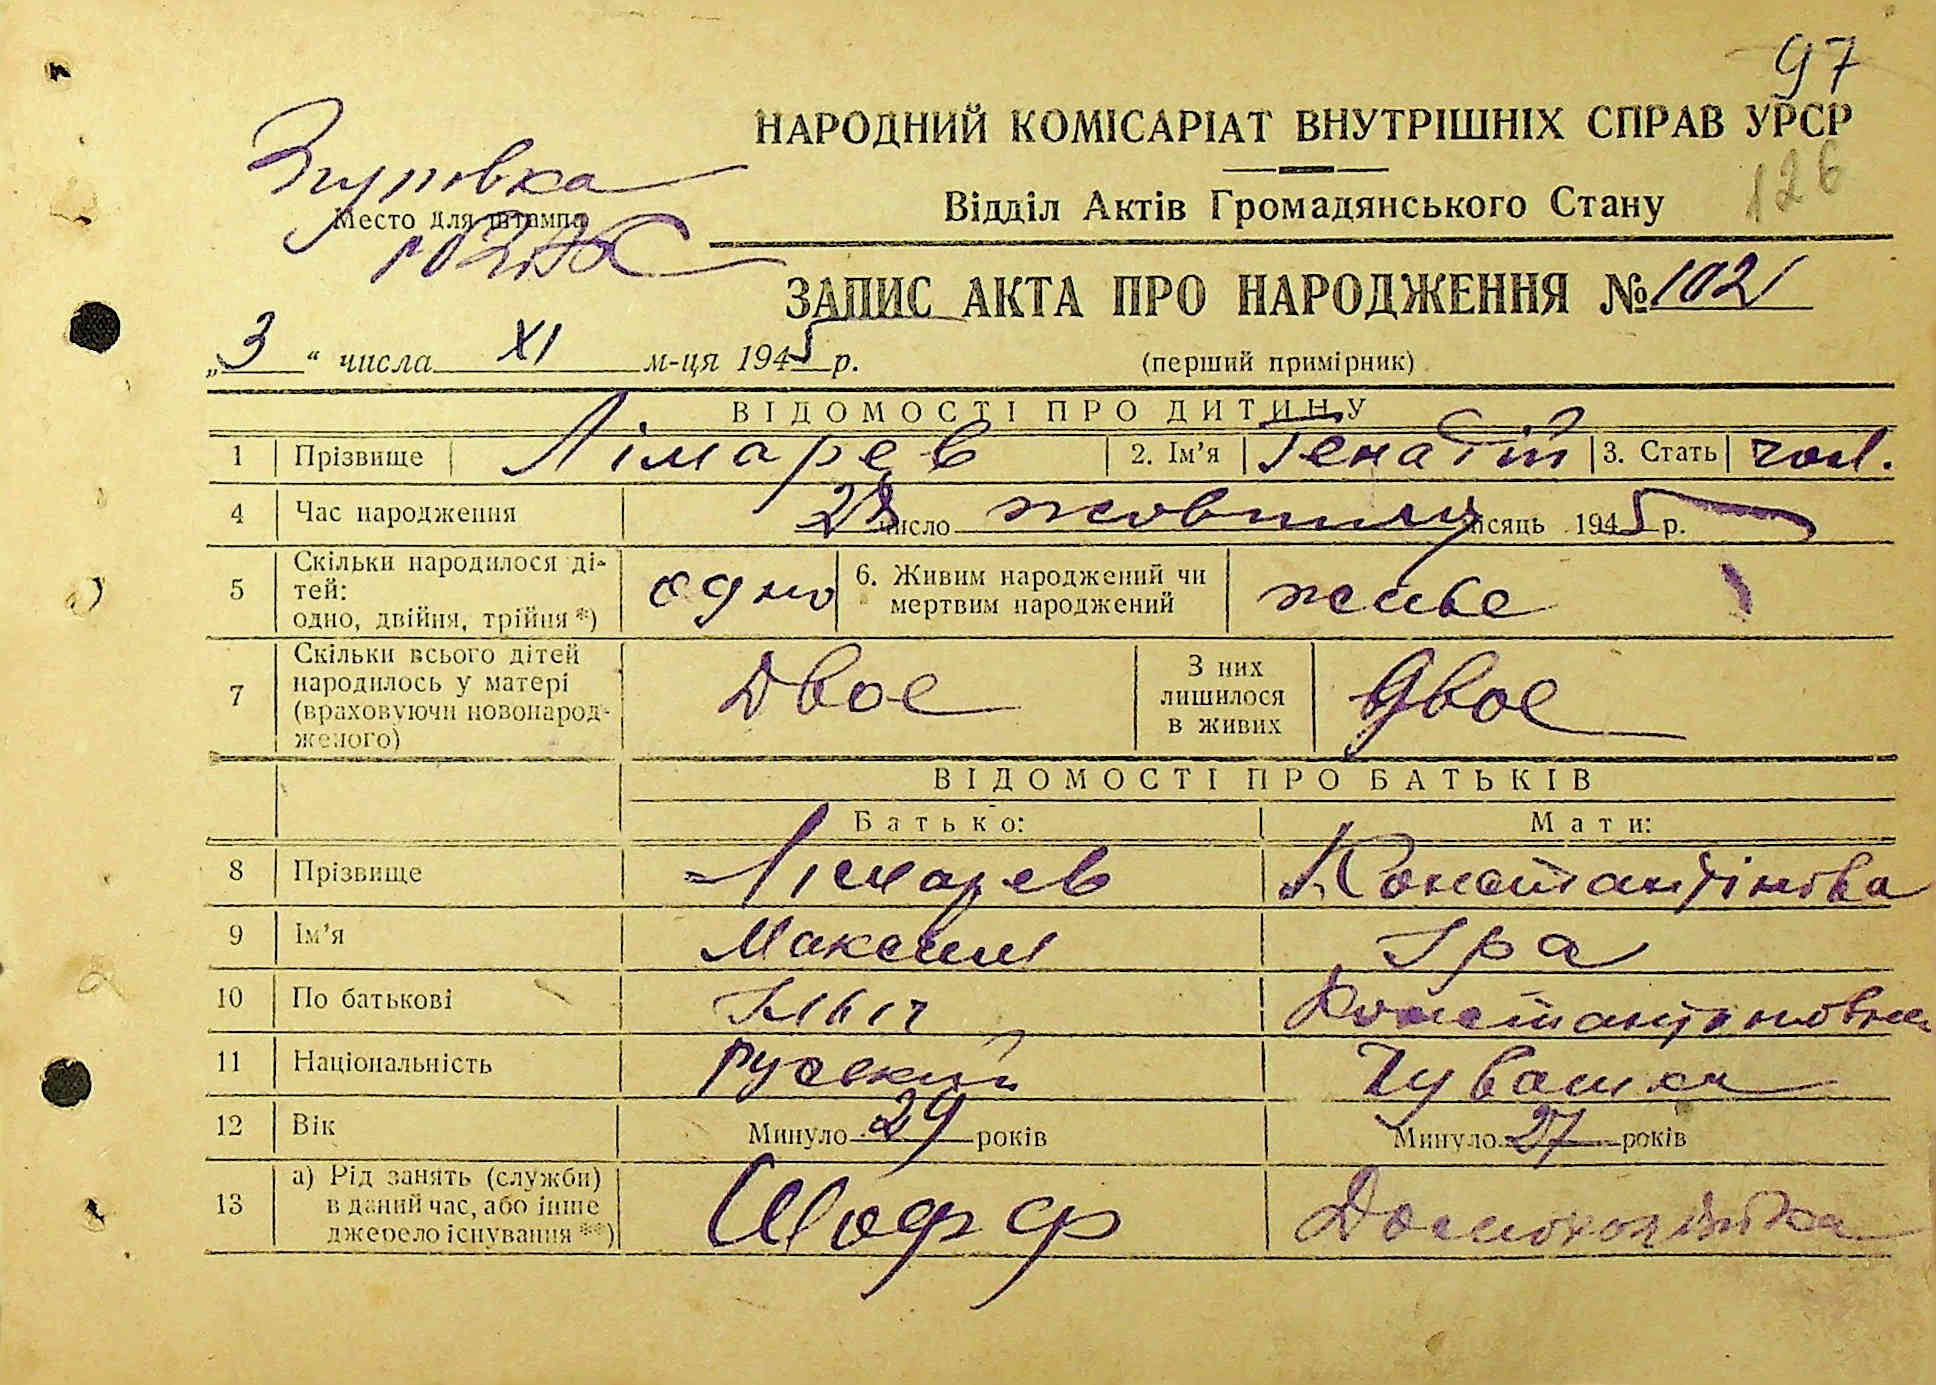 97
НАРОДНИЙ КОМІСАРІАТ ВНУТРІШНІХ СПРАВ УРСР
126
Відділ Актів Громадянського Стану
Место для штампа
ЗАПИС АКТА ПРО НАРОДЖЕННЯ № 1021
„3“ числа XI м-ця 1945 р. (перший примірник)
ВІДОМОСТІ ПРО ДИТИНУ
1 Прізвище Лімарев 2. Ім'я Генадій 3. Стать чол.
4 Час народження 28 число жовтня місяць 1945 р.
5 Скільки народилося ді-
тей:
одно, двійня, трійня *) одно 6. Живим народжений чи
мертвим народжений живе
7 Скільки всього дітей
народилось у матері
(враховуючи новонарод-
женого) Двое З них
лишилося
в живих двое
ВІДОМОСТІ ПРО БАТЬКІВ
Батько: Мати:
8 Прізвище Лімарев Константінова
9 Ім'я Максим Іра
10 По батькові Ільіч Константиновна
11 Національність руський Чувашка
12 Вік Минуло 29 років Минуло 27 років
13 а) Рід занять (служби)
в даний час, або інше
джерело існування **) Шофер Домохозяйка